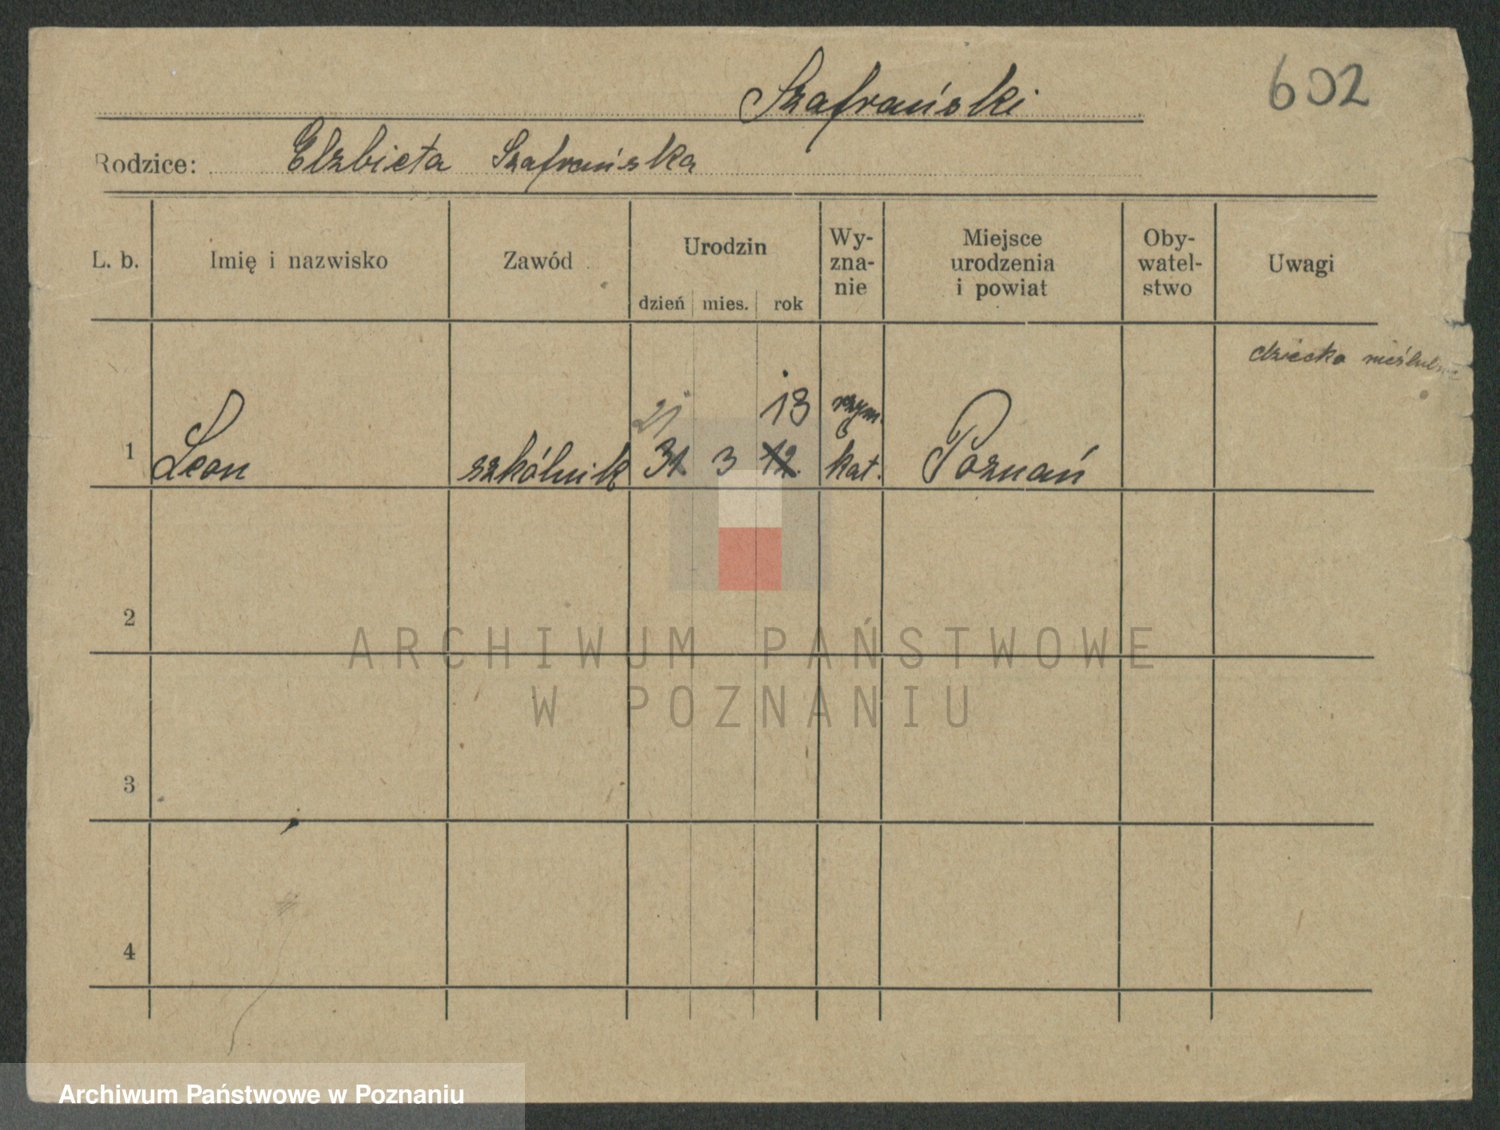 Szafrański
602
Rodzice: Elzbieta Szafrańska
L. b. Imię i nazwisko Zawód Urodzin Wy-zna-nie Miejsce urodzenia i powiat Oby-watel-stwo Uwagi
dzień mies. rok
dziecko nieślubne
21 13 rzym.
1 Leon szkólnik 31 3 12. kat. Poznań
2
ARCHIWUM PAŃSTWOWE
W POZNANIU
3
4
Archiwum Państwowe w Poznaniu